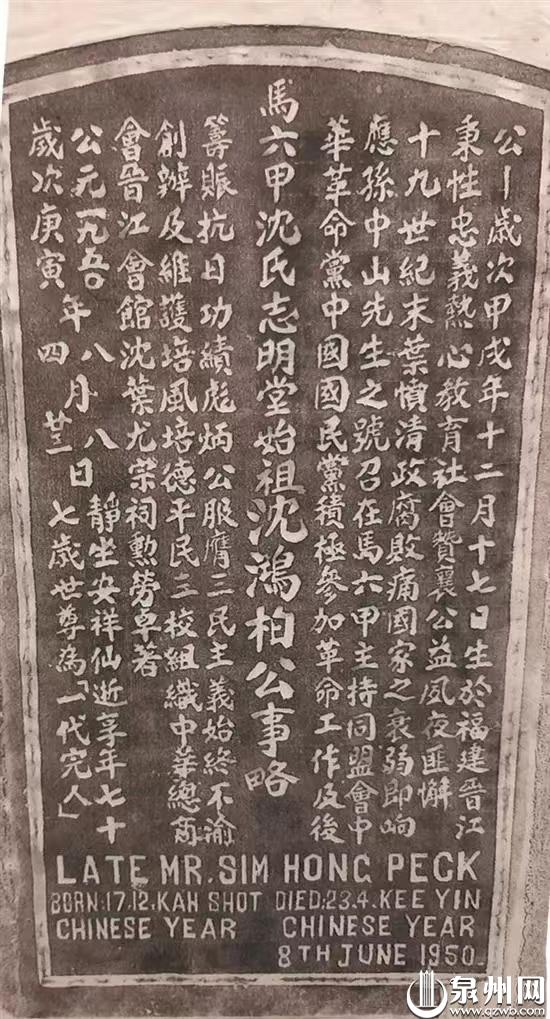 公一歲次甲戌年十二月十七日生於福建晉江
秉性忠義熱心教育社會贊襄公益夙夜匪懈
十九世紀末葉憤清政腐敗痛國家之衰弱即响
應孫中山先生之號召在馬六甲主持同盟會中
華革命黨中國國民黨積極參加革命工作及後
馬六甲沈氏志明堂始祖沈鴻柏公事略
籌賑抗日功績彪炳公服膺三民主義始終不渝
創辦及維護培風培德平民三校組織中華總商
會晉江會館沈葉尤宗祠勳勞卓著
公元一九五〇年六月八日靜坐安祥仙逝享年七十
歲次庚寅四廿三七歲世尊為「一代完人」
LATE MR. SIM HONG PECK
BORN:17.12.KAH SHOT DIED:23.4.KEE YIN
CHINESE YEAR CHINESE YEAR
8TH JUNE 1950.
泉州网
www.qzwb.com